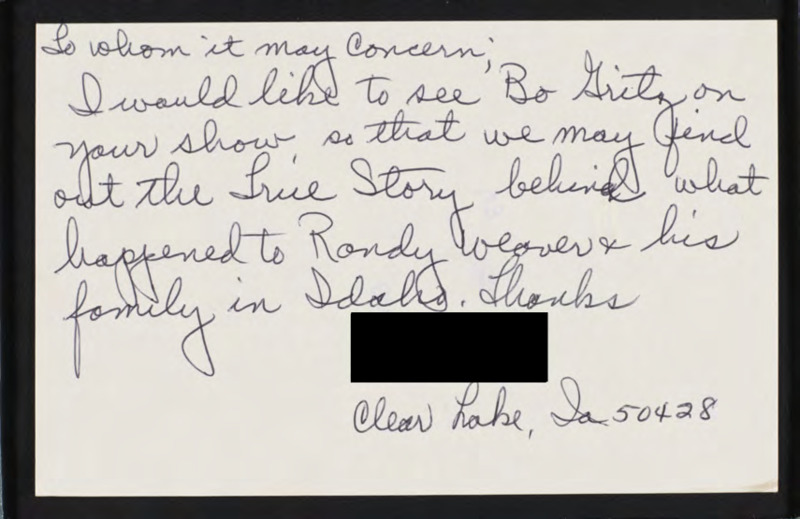 To whom it may Concern;
I would like to see Bo Gritz on
your show, so that we may find
out the True Story behind what
happened to Randy Weaver & his
family in Idaho. Thanks
Clear Lake, Ia 50428